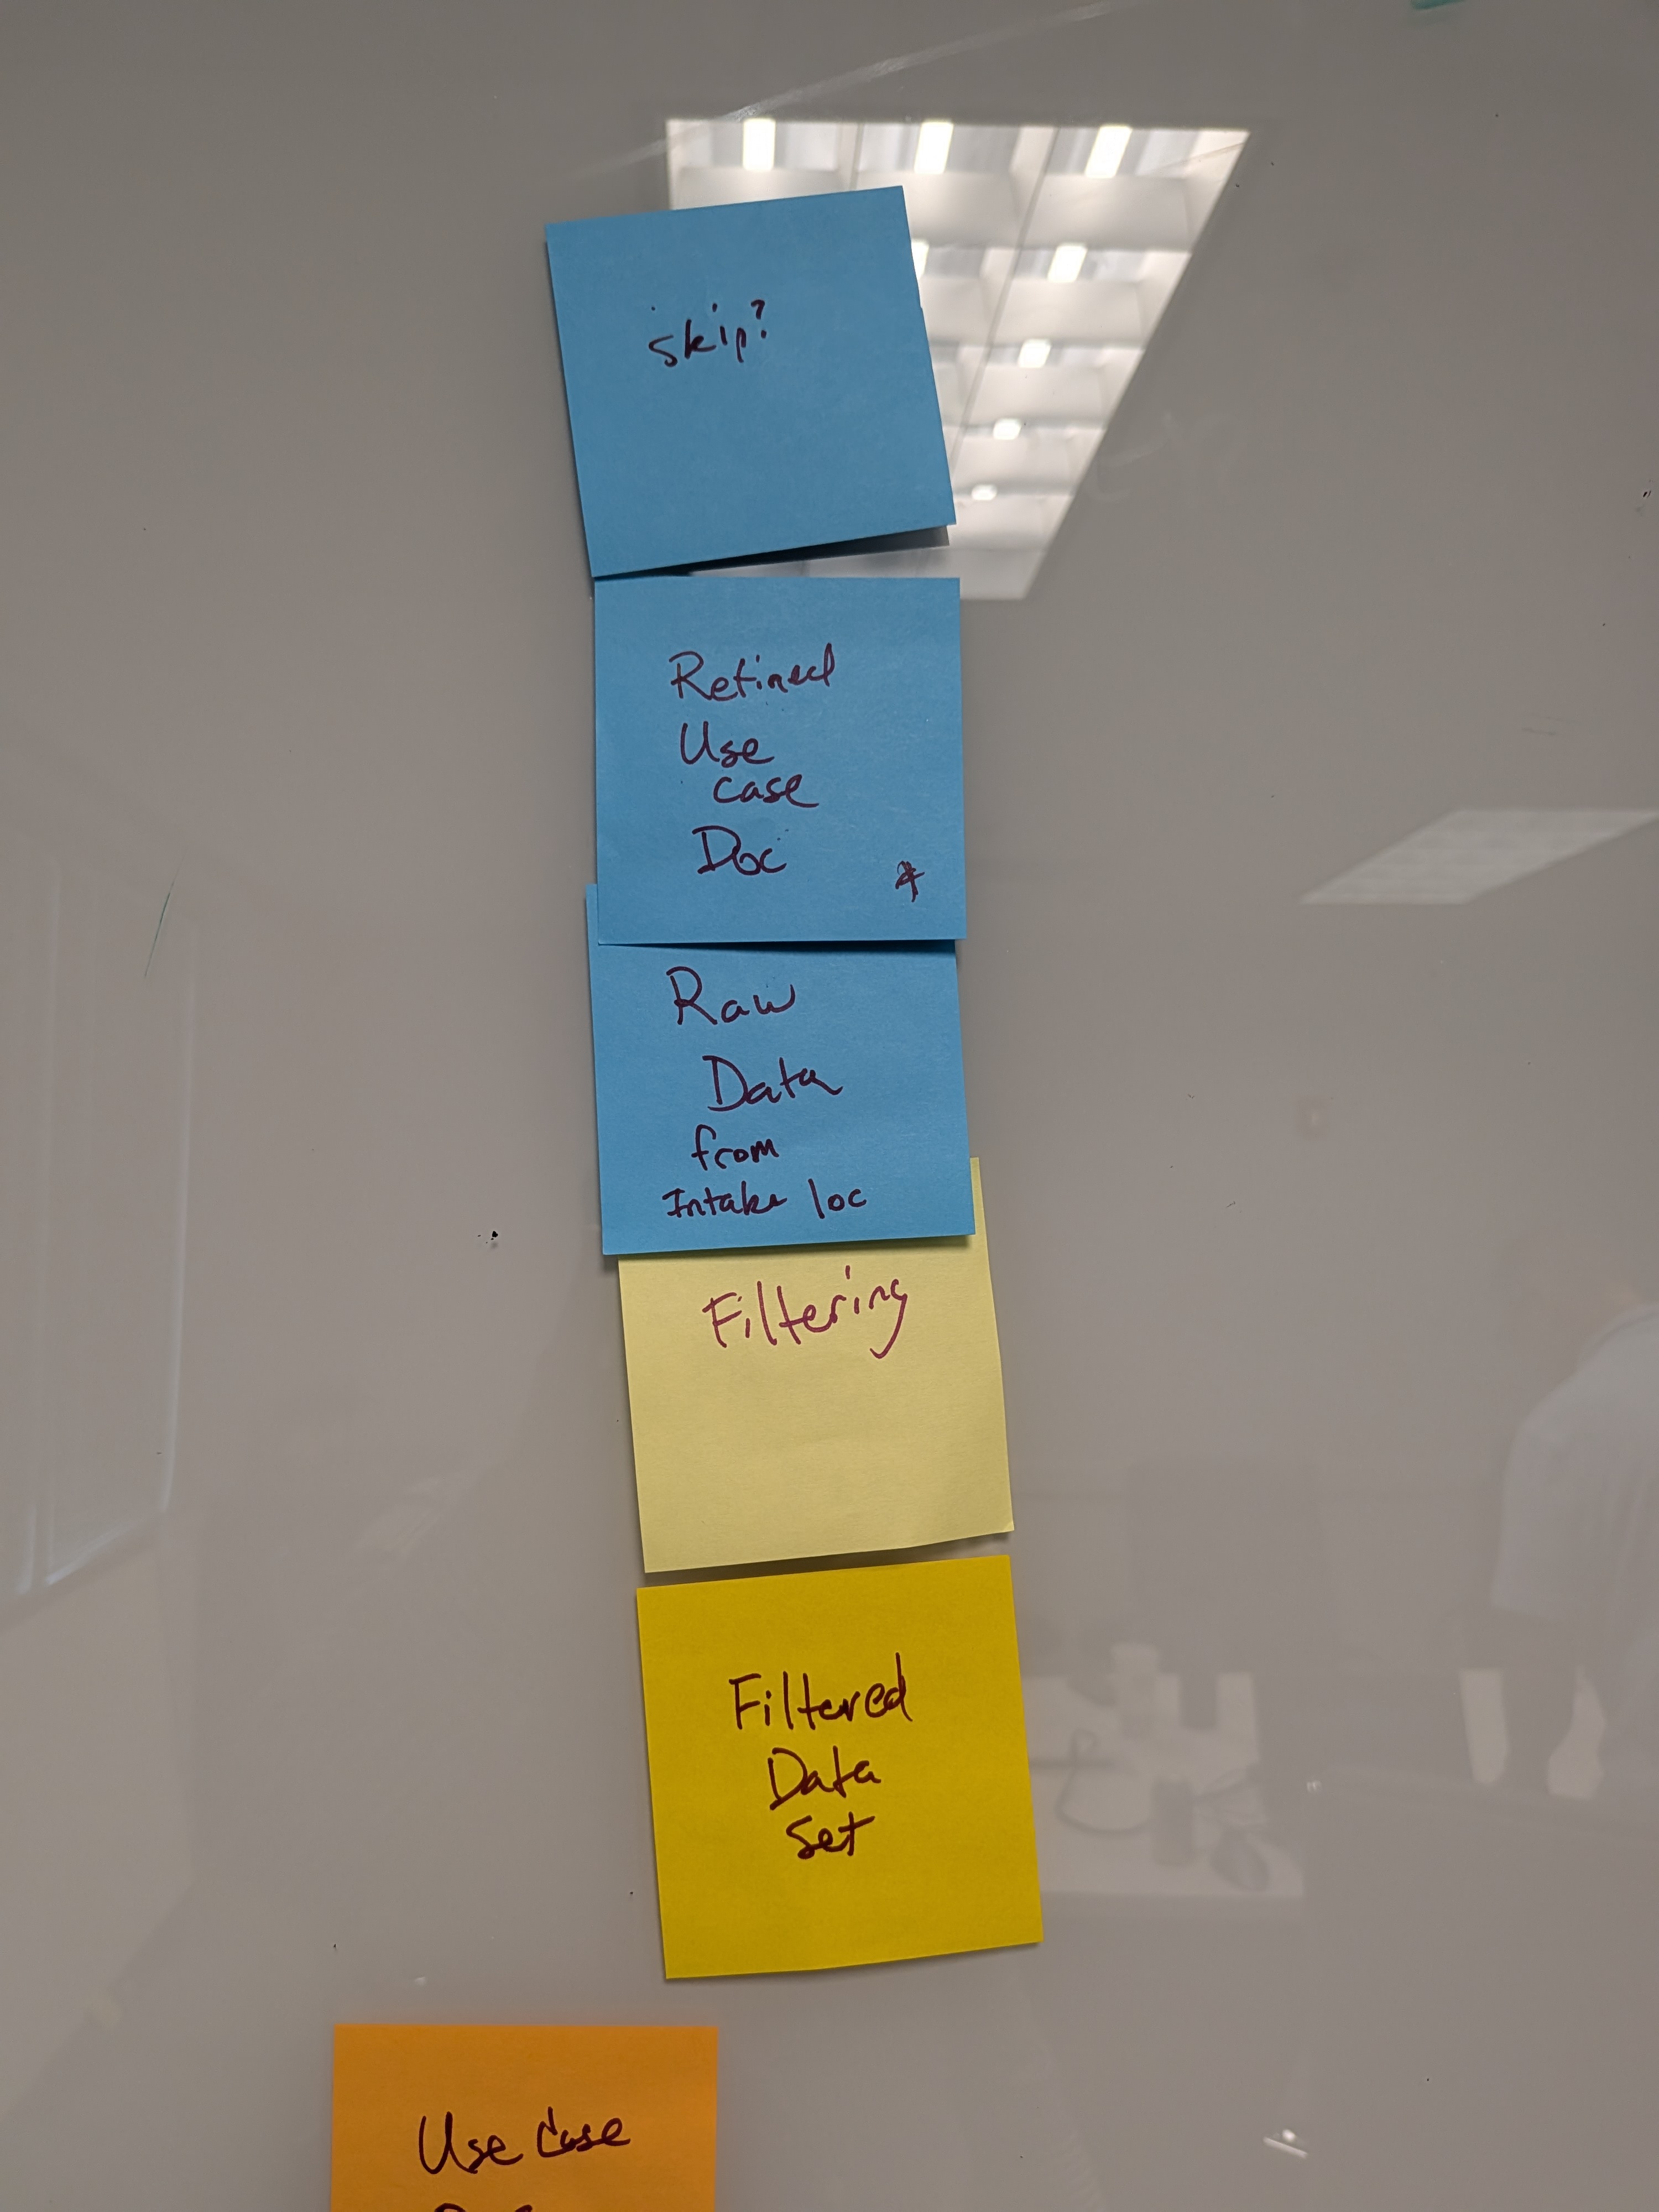 skip?
Refined
Use
case
Doc *
Raw
Data
from
Intake loc
Filtering
Filtered
Data
Set
Use Case